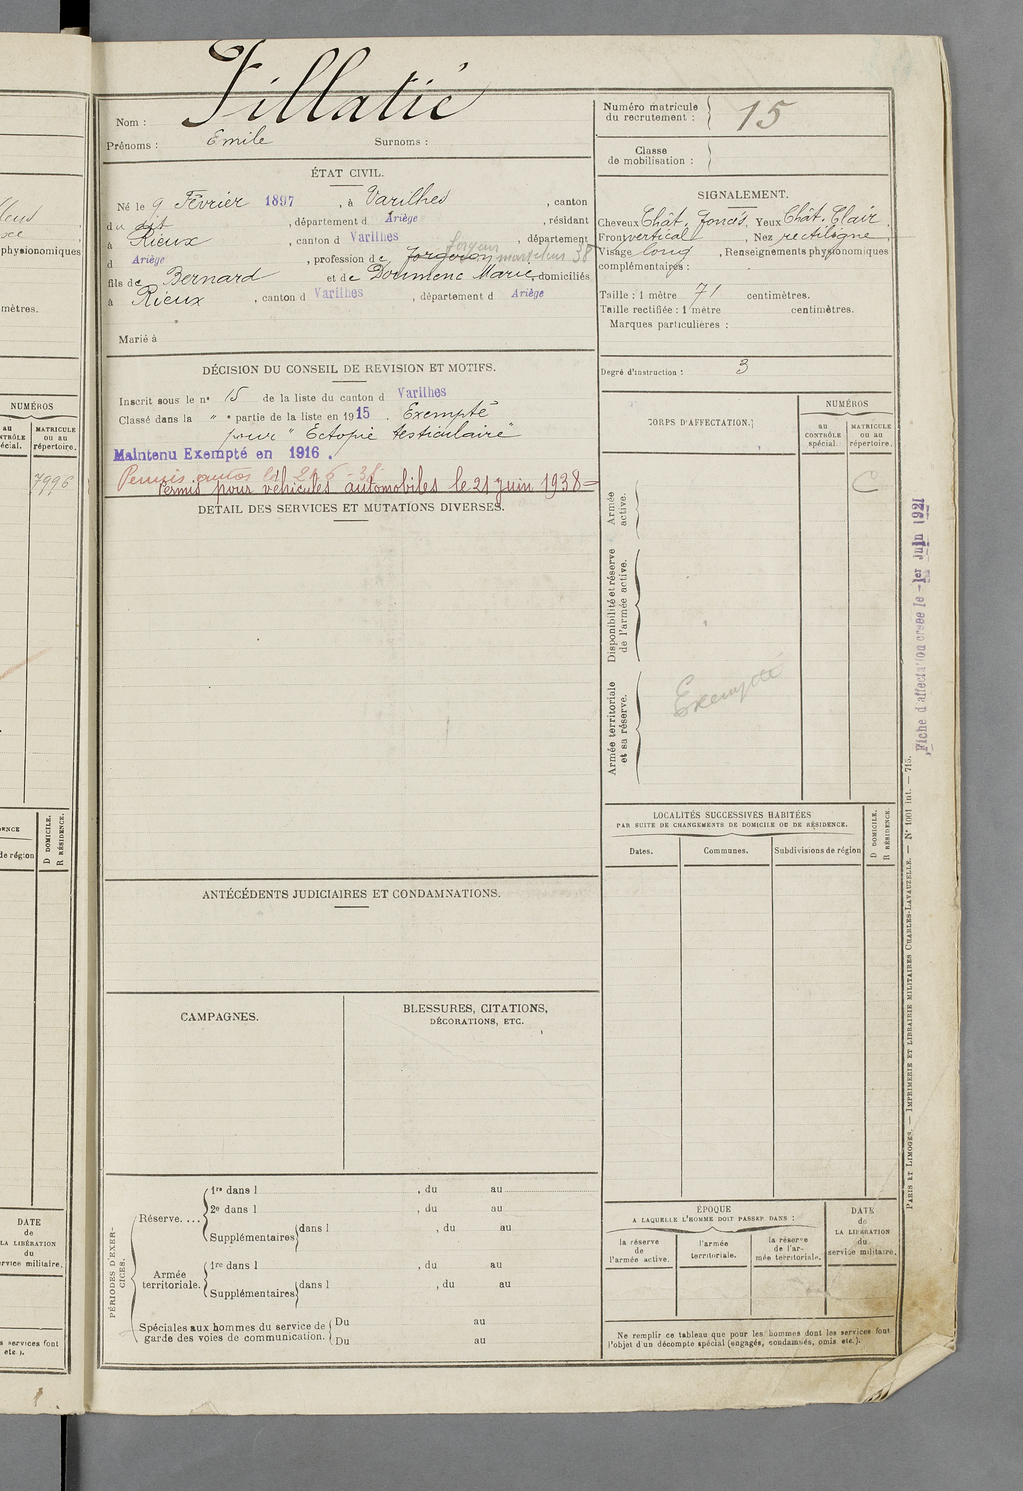 Nom : Tillatié
Prénoms : Emile Surnoms :
Numéro matricule du recrutement : 15
Classe de mobilisation :
ÉTAT CIVIL.
Né le 9 Février 1897, à Varilhes, canton
du dit, département d Ariège, résidant
à Rieux, canton d Varilhes, département
d Ariège, profession de forgeron forgeur marteleur 38
fils de Bernard et de Doumenc Marie domiciliés
à Rieux, canton d Varilhes, département d Ariège
Marié à
SIGNALEMENT.
Cheveux Chât. foncés, Yeux Chât. Clair
Front vertical, Nez rectiligne
Visage long, Renseignements physionomiques
complémentaires :
Taille : 1 mètre 71 centimètres.
Taille rectifiée : 1 mètre centimètres.
Marques particulières :
Degré d'instruction : 3
DÉCISION DU CONSEIL DE REVISION ET MOTIFS.
Inscrit sous le n° 15 de la liste du canton d Varilhes
Classé dans la " e partie de la liste en 1915. Exempté
pour " Ectopie testiculaire "
Maintenu Exempté en 1916.
Permis autos le 21-6-38
Permis pour véhicules automobiles le 21 juin 1938 =
DÉTAIL DES SERVICES ET MUTATIONS DIVERSES.
CORPS D'AFFECTATION.
NUMÉROS
au CONTRÔLE spécial.
MATRICULE ou au répertoire.
C
Armée active.
Disponibilité et réserve de l'armée active.
Armée territoriale et sa réserve.
Exempté
LOCALITÉS SUCCESSIVES HABITÉES
PAR SUITE DE CHANGEMENTS DE DOMICILE OU DE RÉSIDENCE.
Dates. Communes. Subdivisions de région
D DOMICILE.
R RÉSIDENCE.
ANTÉCÉDENTS JUDICIAIRES ET CONDAMNATIONS.
CAMPAGNES.
BLESSURES, CITATIONS,
DÉCORATIONS, ETC.
PÉRIODES D'EXERCICES.
Réserve....
1re dans l , du au
2e dans l , du au
Supplémentaires dans l , du au
Armée territoriale.
1re dans l , du au
Supplémentaires dans l , du au
Spéciales aux hommes du service de garde des voies de communication.
Du au
Du au
ÉPOQUE
A LAQUELLE L'HOMME DOIT PASSER DANS :
la réserve de l'armée active.
l'armée territoriale.
la réserve de l'armée territoriale.
DATE de LA LIBÉRATION du service militaire.
Ne remplir ce tableau que pour les hommes dont les services font
l'objet d'un décompte spécial (engagés, condamnés, omis etc.).
Fiche d'affectation créée le 1er Juin 1927
PARIS ET LIMOGES. — IMPRIMERIE ET LIBRAIRIE MILITAIRES CHARLES-LAVAUZELLE. — N° 1001 int. — 715.
physionomiques
mètres.
NUMÉROS
au CONTRÔLE spécial.
MATRICULE ou au répertoire.
7996
de région
D DOMICILE.
R RÉSIDENCE.
DATE
de
LA LIBÉRATION
du
service militaire.
services font
etc.).